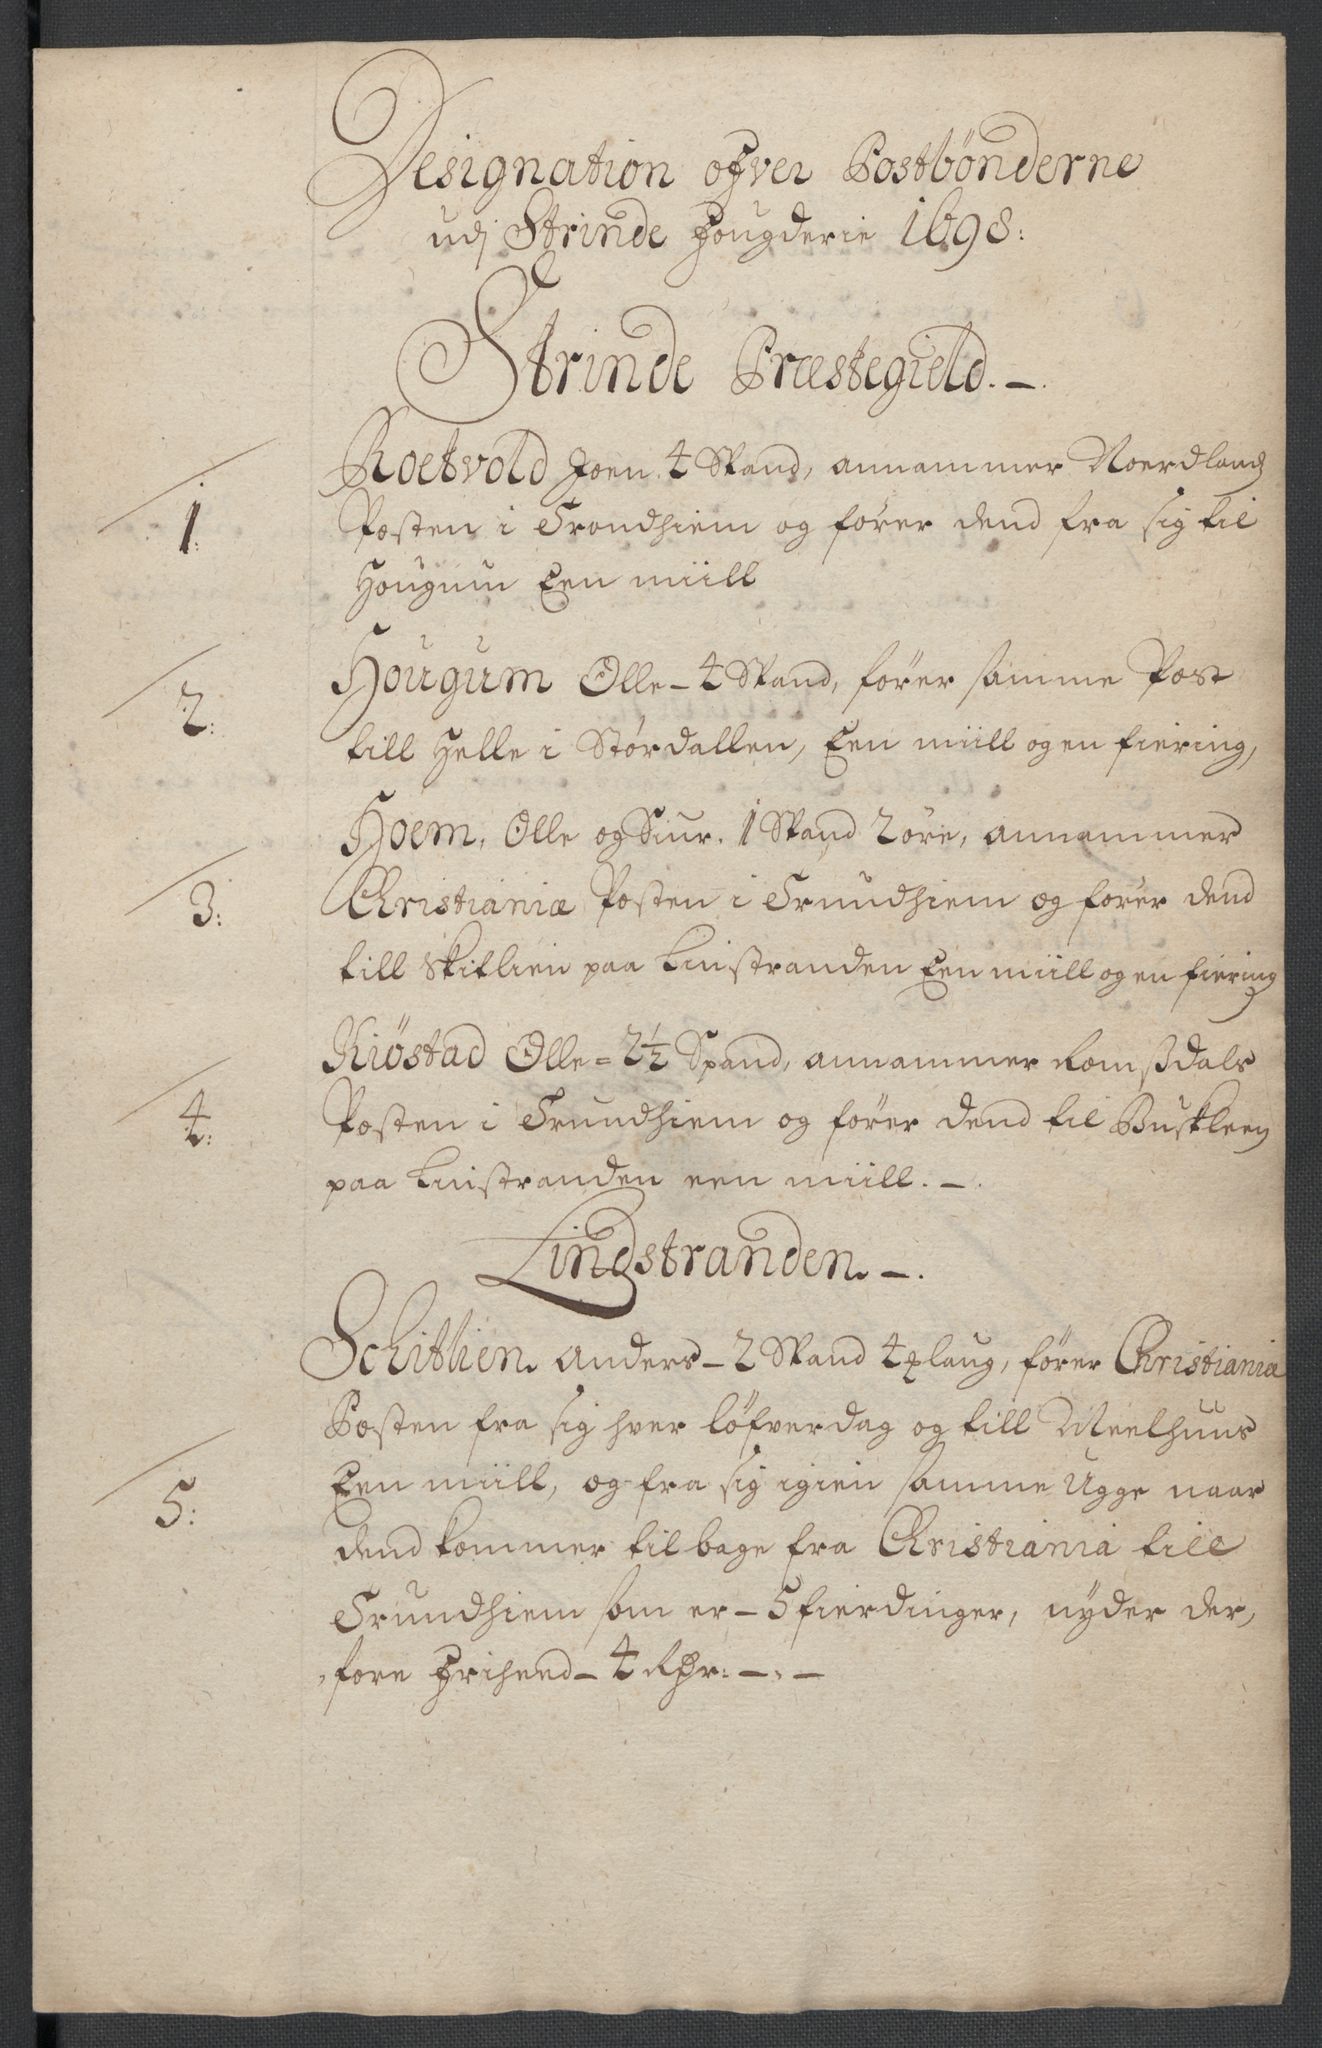 Designation ofver Postbønderne
udj Strinde Fougderie 1698:
Strinde Præstegield. —.
1. Roetvold Joen. 4 Spand, annammer Noerdlandz
Posten i Trondhiem og fører dend fra sig til
Hougum Een miill
2: Hougum Olle — 4 Spand, fører samme Post
till Helle i Størdallen, Een miill og en fiering,
Hoem, Olle og Siur. 1 Spand 2 øre, annammer
3: Christianiæ Posten i Trundhiem og fører dend
till Skitlien paa Linstranden Een miill og en fiering
Kiøstad Olle = 2½ Spand, annammer Romßdals
4: Posten i Trundhiem og fører dend til Buskleen
paa Linstranden een miill. —.
Lindstranden. —.
Schitlien. Anders — 2 Spand 4 ꝑlaug, fører Christiania
Posten fra sig hver løfverdag og till Meelhuus
5: Een miill, og fra sig igien samme Ugge naar
dend kommer tilbage fra Christiania till
Trundhiem som er — 5 fierdinger, nyder der,
,fore Friheed — 4 Rdr: —. —